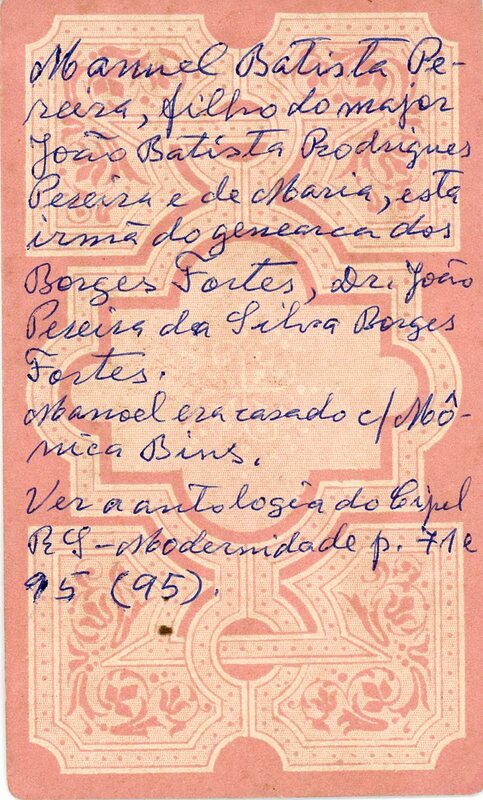 Manuel Batista Pe-
reira, filho do major
João Batista Rodrigues
Pereira e de Maria, esta
irmã do genearca dos
Borges Fortes, Dr. João
Pereira da Silva Borges
Fortes.
Manoel era casado c/ Mô-
nica Bins.
Ver a antologia do Cipel
RS-Modernidade p. 71 e
95 (95).